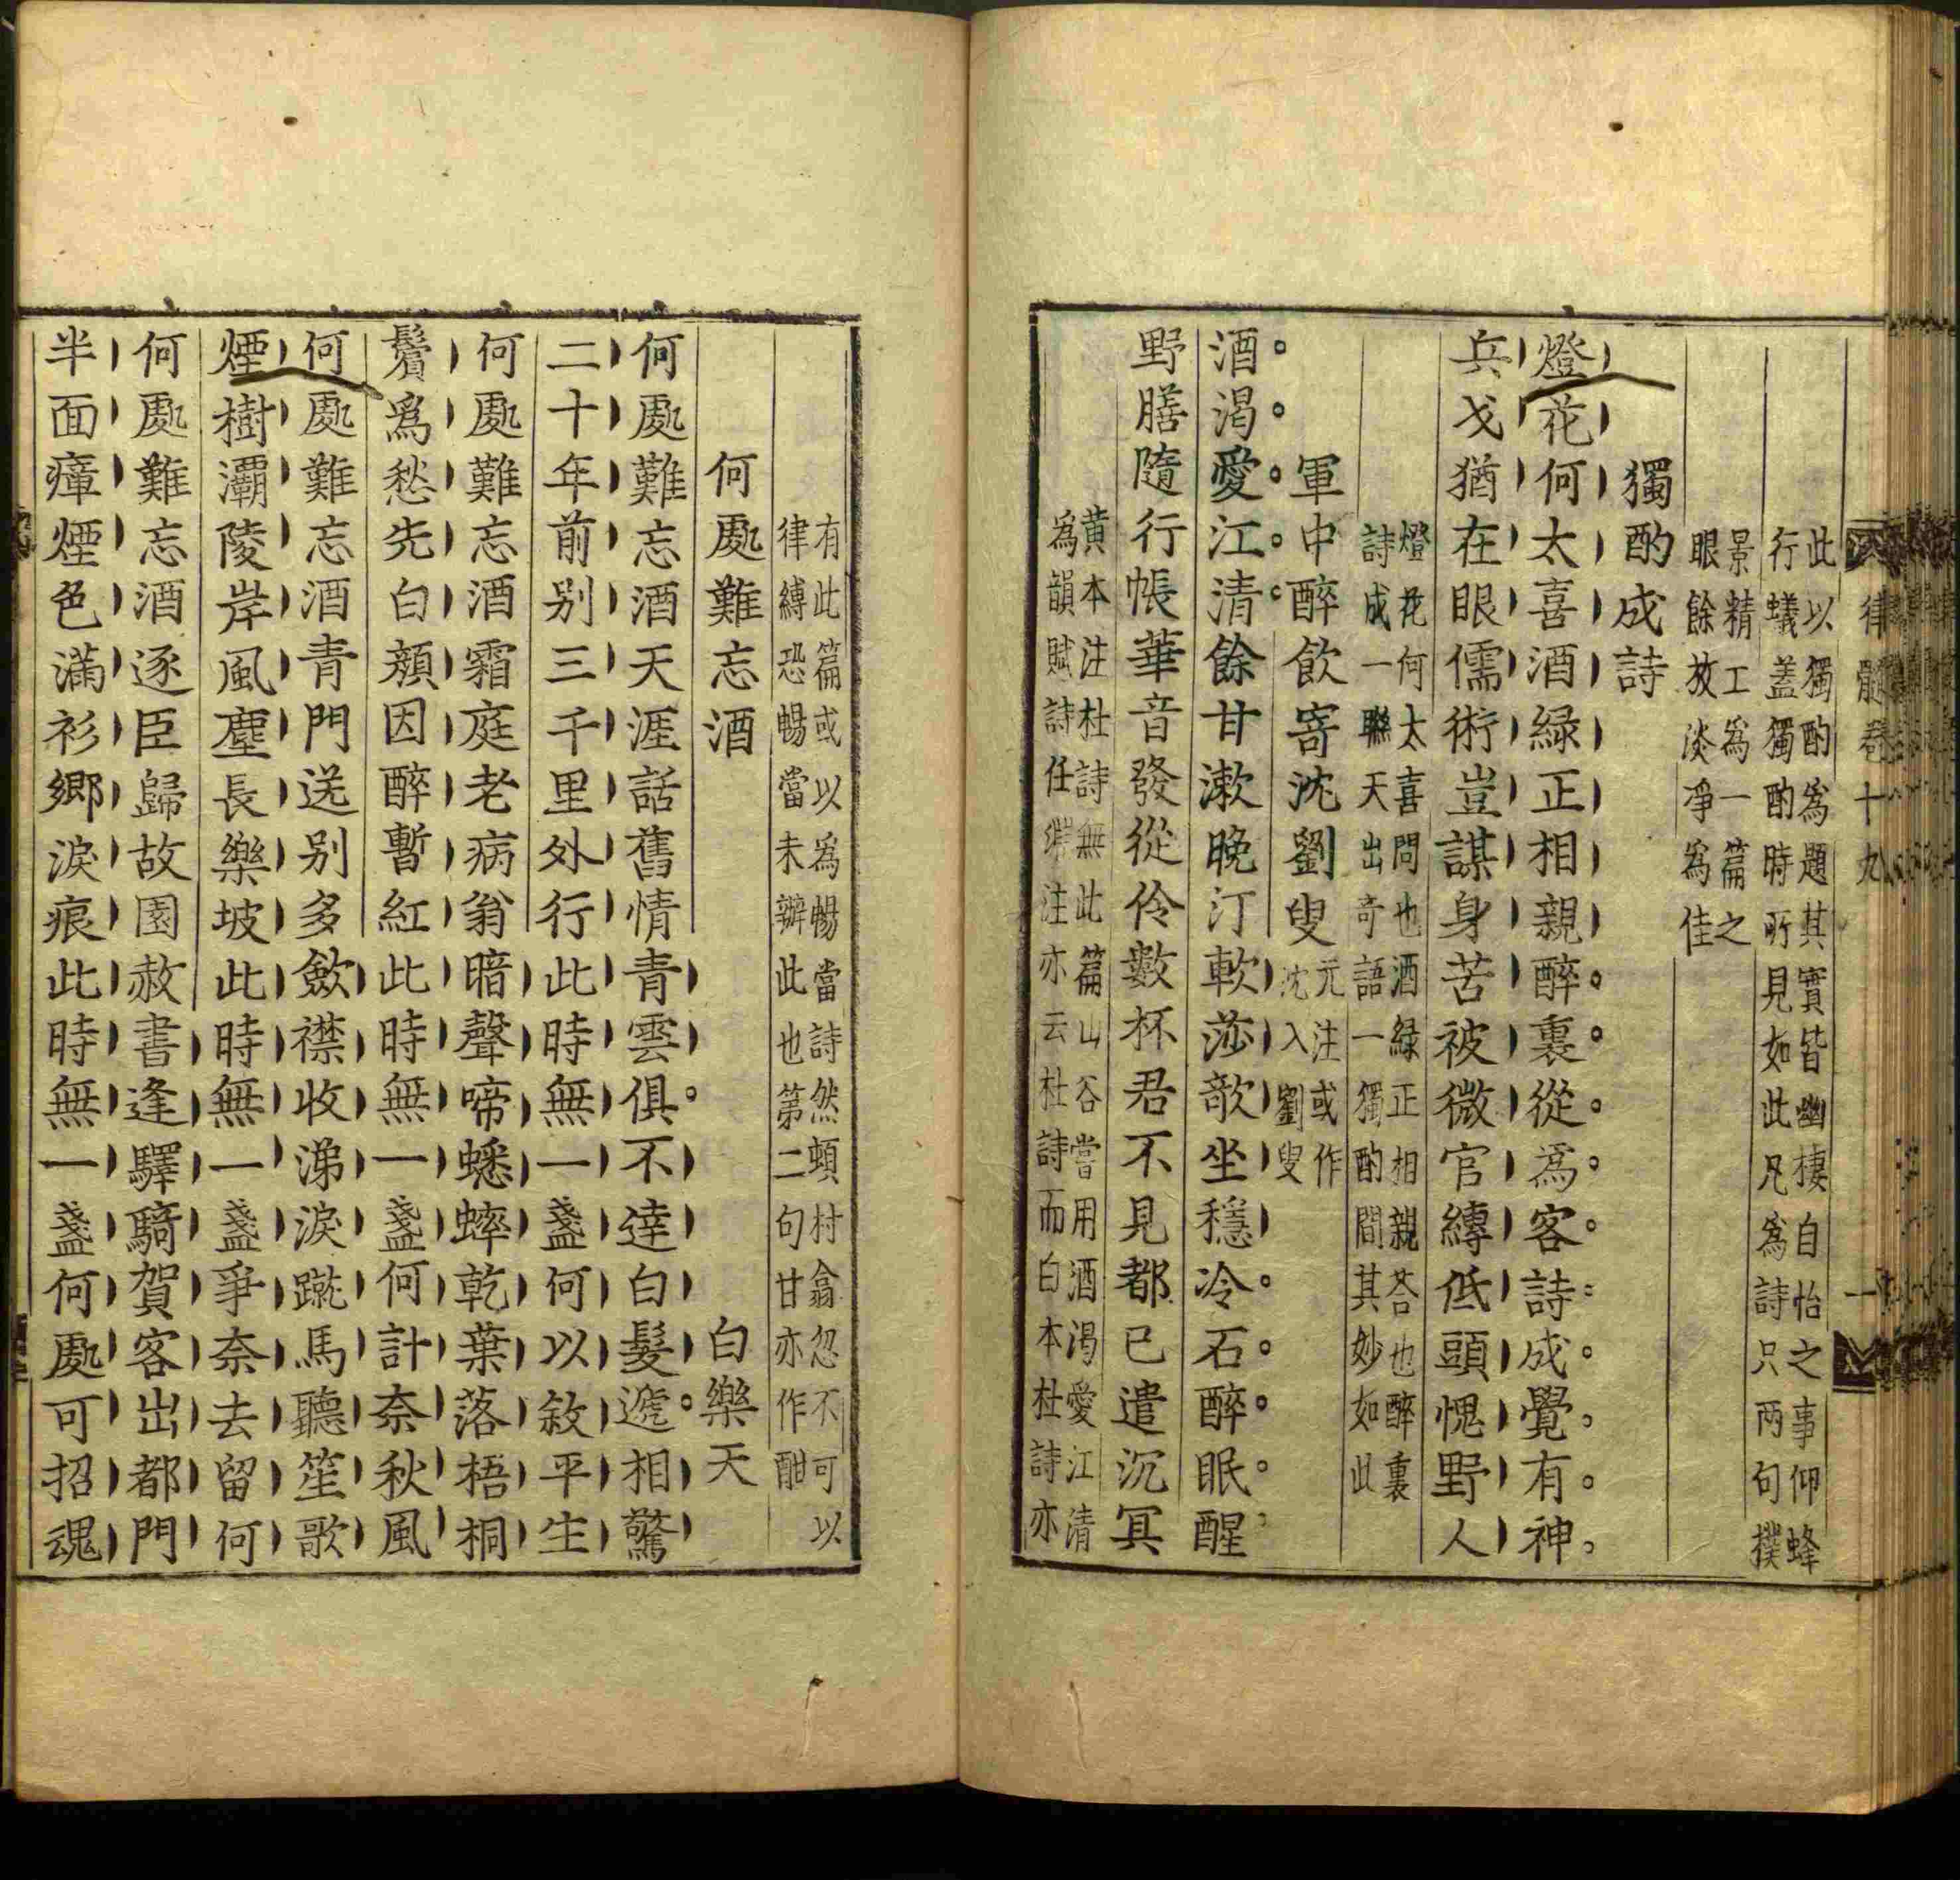 律髓卷十九
一
此以獨酌為題其實皆幽棲自怡之事仰蜂
行蟻蓋獨酌時所見如此凡為詩只两句撲
景精工為一篇之
眼餘放淡爭為佳
獨酌成詩
燈花何太喜酒綠正相親醉裏從爲客詩成覺有神
兵戈猶在眼儒術豈謀身苦被微官縛低頭愧野人
燈花何太喜問也酒綠正相親荅也醉裏
詩成一聯天出奇語一獨酌間其妙如此
軍中醉飲寄沈劉叟
元注或作
沈入劉叟
酒渴愛江清餘甘漱晚汀軟莎欹坐穩冷石醉眠醒
野膳隨行帳華音發從伶數杯君不見都已遣沉冥
黄本注杜詩無此篇山谷嘗用酒渴愛江清
爲韻賦詩任注亦云杜詩而白本杜詩亦
有此篇或以爲暢當詩然頓村翁忽不可以
律縛恐暢當未辦此也第二句甘亦作酣
何處難忘酒
白樂天
何處難忘酒天涯話舊情青雲俱不達白髮遞相驚
二十年前别三千里外行此時無一盞何以敘平生
何處難忘酒霜庭老病翁暗聲啼蟋蟀乾葉落梧桐
鬢爲愁先白顏因醉暫紅此時無一盞何計奈秋風
何處難忘酒青門送别多歛襟收涕淚蹴馬聽笙歌
煙樹灞陵岸風塵長樂坡此時無一盞爭奈去留何
何處難忘酒逐臣歸故園赦書逢驛騎賀客出都門
半面瘴煙色滿衫鄉淚痕此時無一盞何處可招魂